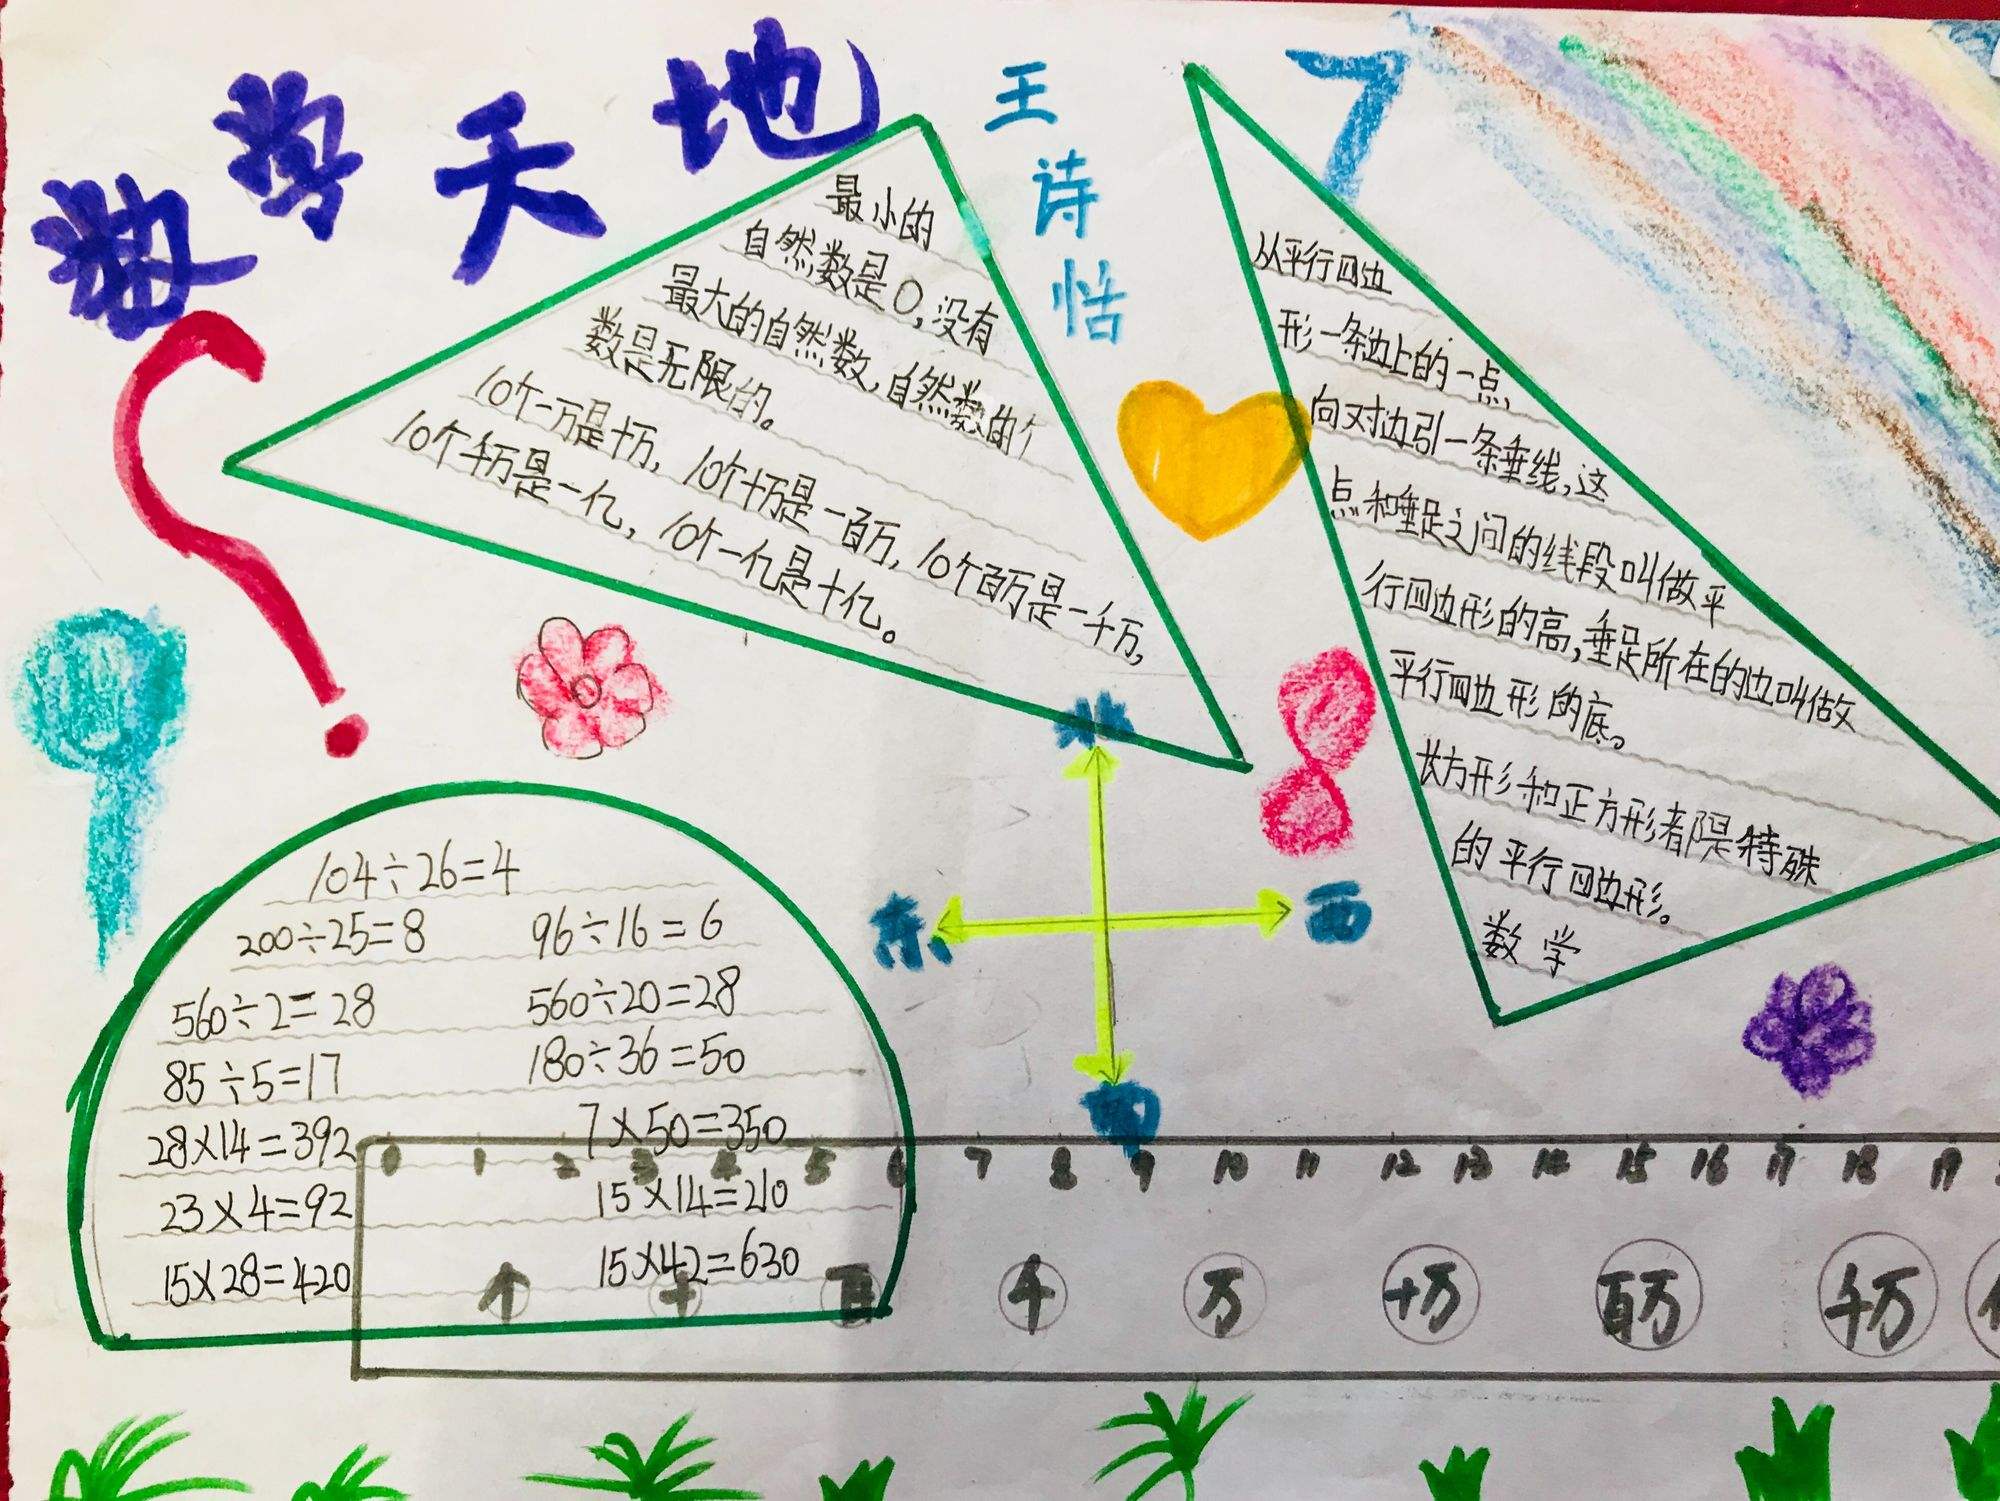 数学天地
王诗恬
7
最小的
自然数是0,没有
最大的自然数,自然数的个
数是无限的。
10个一万是十万,10个十万是一百万,10个百万是一千万,
10个千万是一亿,10个一亿是十亿。
从平行四边
形一条边上的一点
向对边引一条垂线,这
点和垂足之间的线段叫做平
行四边形的高,垂足所在的边叫做
平行四边形的底。
长方形和正方形都是特殊
的平行四边形。
数学
?
北
东
西
104÷26=4
200÷25=8 96÷16=6
560÷2=28 560÷20=28
85÷5=17 180÷36=50
28×14=392 7×50=350
23×4=92 15×14=210
15×28=420 15×42=630
0 1 2 3 4 5 6 7 8 9 10 11 12 13 14 15 16 17 18 19
个 十 百 千 万 十万 百万 千万